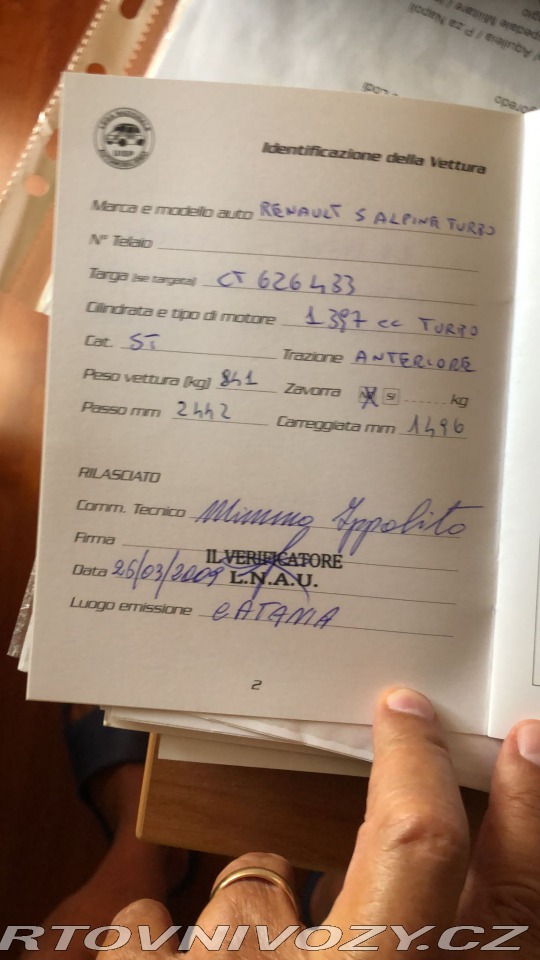 Aquileia / P.za Napoli
spedale Militare
LEGA NAZIONALE
UISP
Identificazione della Vettura
Marca e modello auto RENAULT 5 ALPINE TURBO
N° Telaio
Targa (se targata) CT 626433
Cilindrata e tipo di motore 1397 cc TURBO
Cat. ST Trazione ANTERIORE
Peso vettura (kg) 841 Zavorra NO SI ...... kg
Passo mm 2442 Carreggiata mm 1496
RILASCIATO
Comm. Tecnico Mimmo Ippolito
Firma
IL VERIFICATORE
Data 26/03/2009 L.N.A.U.
Luogo emissione CATANIA
2
RTOVNIVOZY.CZ